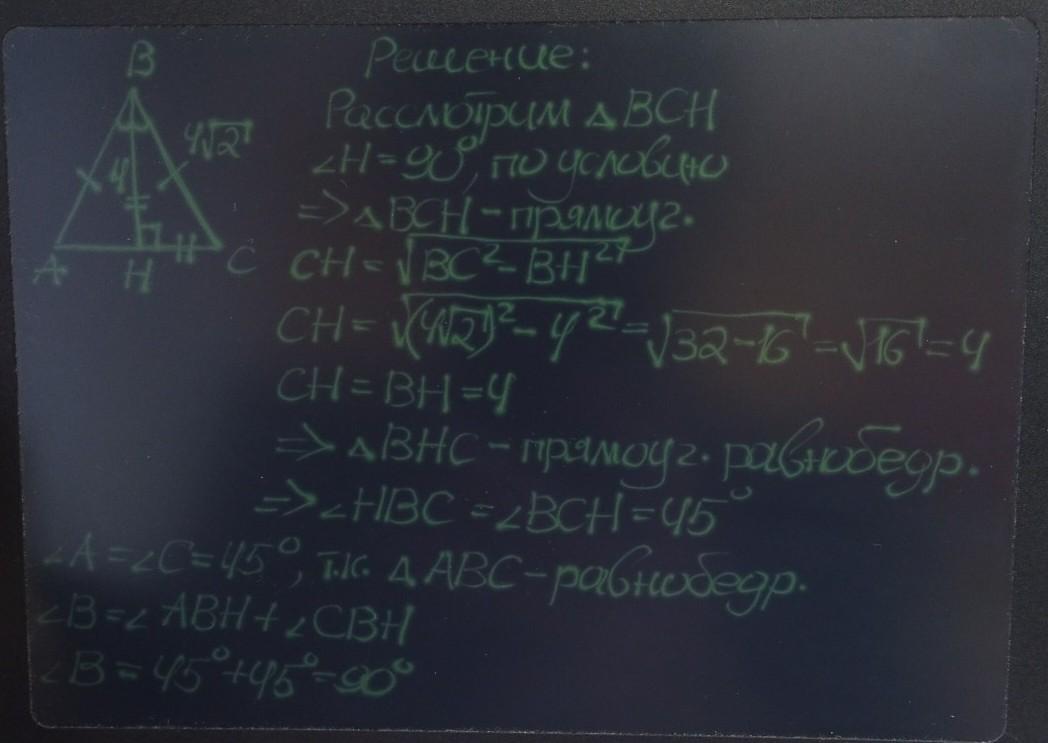 B
4√2
4
A H C
Решение:
Рассмотрим △BCH
∠H = 90°, по условию
=> △BCH - прямоуг.
CH = √(BC² - BH²)
CH = √((4√2)² - 4²) = √(32-16) = √16 = 4
CH = BH = 4
=> △BHC - прямоуг. равнобедр.
=> ∠HBC = ∠BCH = 45°
∠A = ∠C = 45°, т.к. △ABC - равнобедр.
∠B = ∠ABH + ∠CBH
∠B = 45° + 45° = 90°